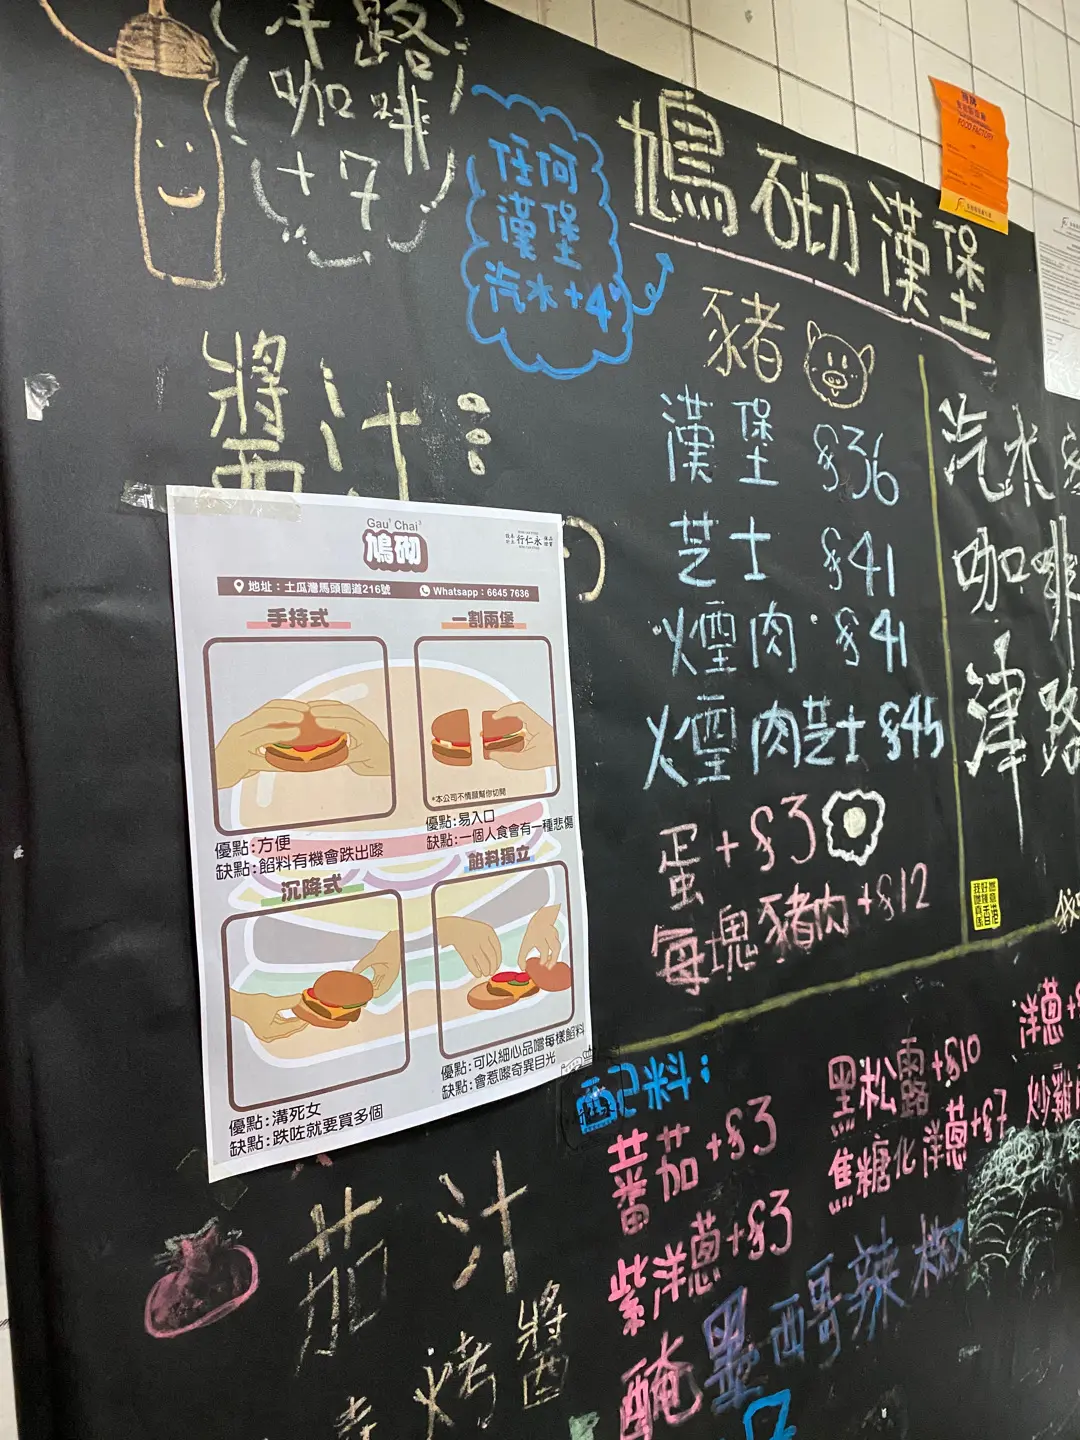 津路
咖啡
+7
任何
漢堡
汽水+4
鳩砌漢堡
FOOD FACTORY
豬
漢堡 $36
芝士 $41
煙肉 $41
煙肉芝士 $45
蛋+$3
每塊豬肉+$12
汽水
咖啡
津路
醬汁:
Gau¹ Chai³
鳩砌
行仁永
地址：土瓜灣馬頭圍道216號
Whatsapp：6645 7636
手持式
優點:方便
缺點:餡料有機會跌出嚟
一割兩堡
*本公司不情願幫你切開
優點:易入口
缺點:一個人食會有一種悲傷
沉降式
優點:溝死女
缺點:跌咗就要買多個
餡料獨立
優點:可以細心品嚐每樣餡料
缺點:會惹嚟奇異目光
香港
配料:
番茄+$3
紫洋蔥+$3
醃墨西哥辣椒
黑松露+$10
焦糖化洋蔥+$7
洋蔥+$
炒雞
茄汁
烤醬